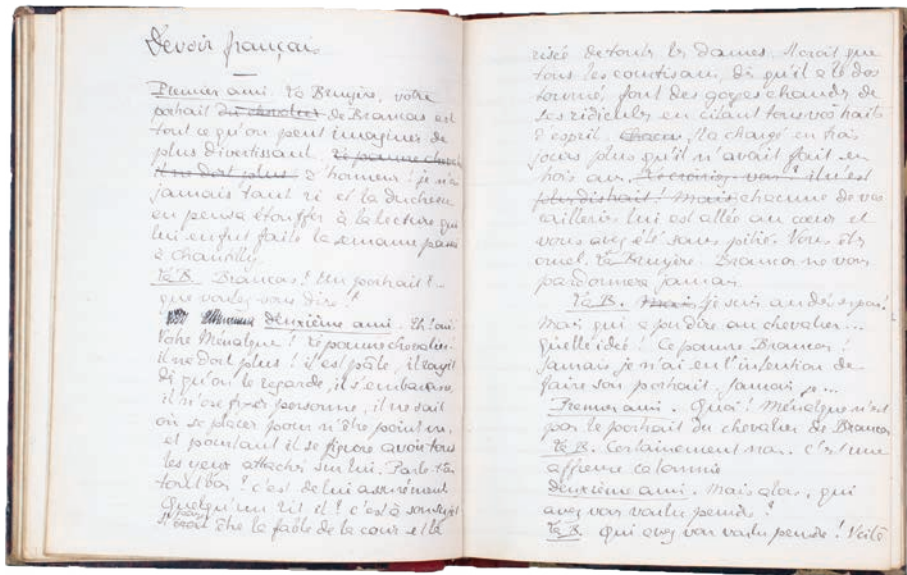 Devoir français.
Premier ami. La Bruyère, votre
portrait du chevalier de Brancas est
tout ce qu'on peut imaginer de
plus divertissant. Le pauvre
il ne dort plus d'honneur ! je n'ai
jamais tant ri et la duchesse
en pensa étouffer à la lecture qui
lui en fut faite la semaine passée
à Chantilly
La B. Brancas ! Un portrait ! ..
que voulez vous dire ?
deuxième ami. Eh ! oui
Votre Ménalque ! Le pauvre chevalier
il ne dort plus ! il est pâle, il rougit
dès qu'on le regarde, il s'embarrasse,
il n'ose fixer personne, il ne sait
où se placer pour n'être point vu,
et pourtant il se figure avoir tous
les yeux attachés sur lui. Parle-t-on
tout bas ? c'est de lui assurément
Quelqu'un rit il ? c'est à son sujet
Il croit être la fable de la cour et la
risée de toutes les dames. Il croit que
tous les courtisans, dès qu'il a le dos
tourné, font des gorges chaudes de
ses ridicules en citant tous vos traits
d'esprit. Il a changé en trois
jours plus qu'il n'avait fait en
trois ans. Le croiriez-vous ? il n'est
plus distrait ! Mais chacune de vos
railleries lui est allée au cœur et
vous avez été sans pitié. Vous êtes
cruel. La Bruyère. Brancas ne vous
pardonnera jamais
La B. Mais je suis au désespoir !
Mais qui a pu dire au chevalier...
Quelle idée ! Ce pauvre Brancas !
Jamais, je n'ai eu l'intention de
faire son portrait. Jamais je ...
Premier ami. Quoi ! Ménalque n'est
pas le portrait du chevalier de Brancas
La B. Certainement non. C'est une
affreuse calomnie
deuxième ami. Mais alors, qui
avez vous voulu peindre ?
La B. Qui avez vous voulu peindre ! Voilà